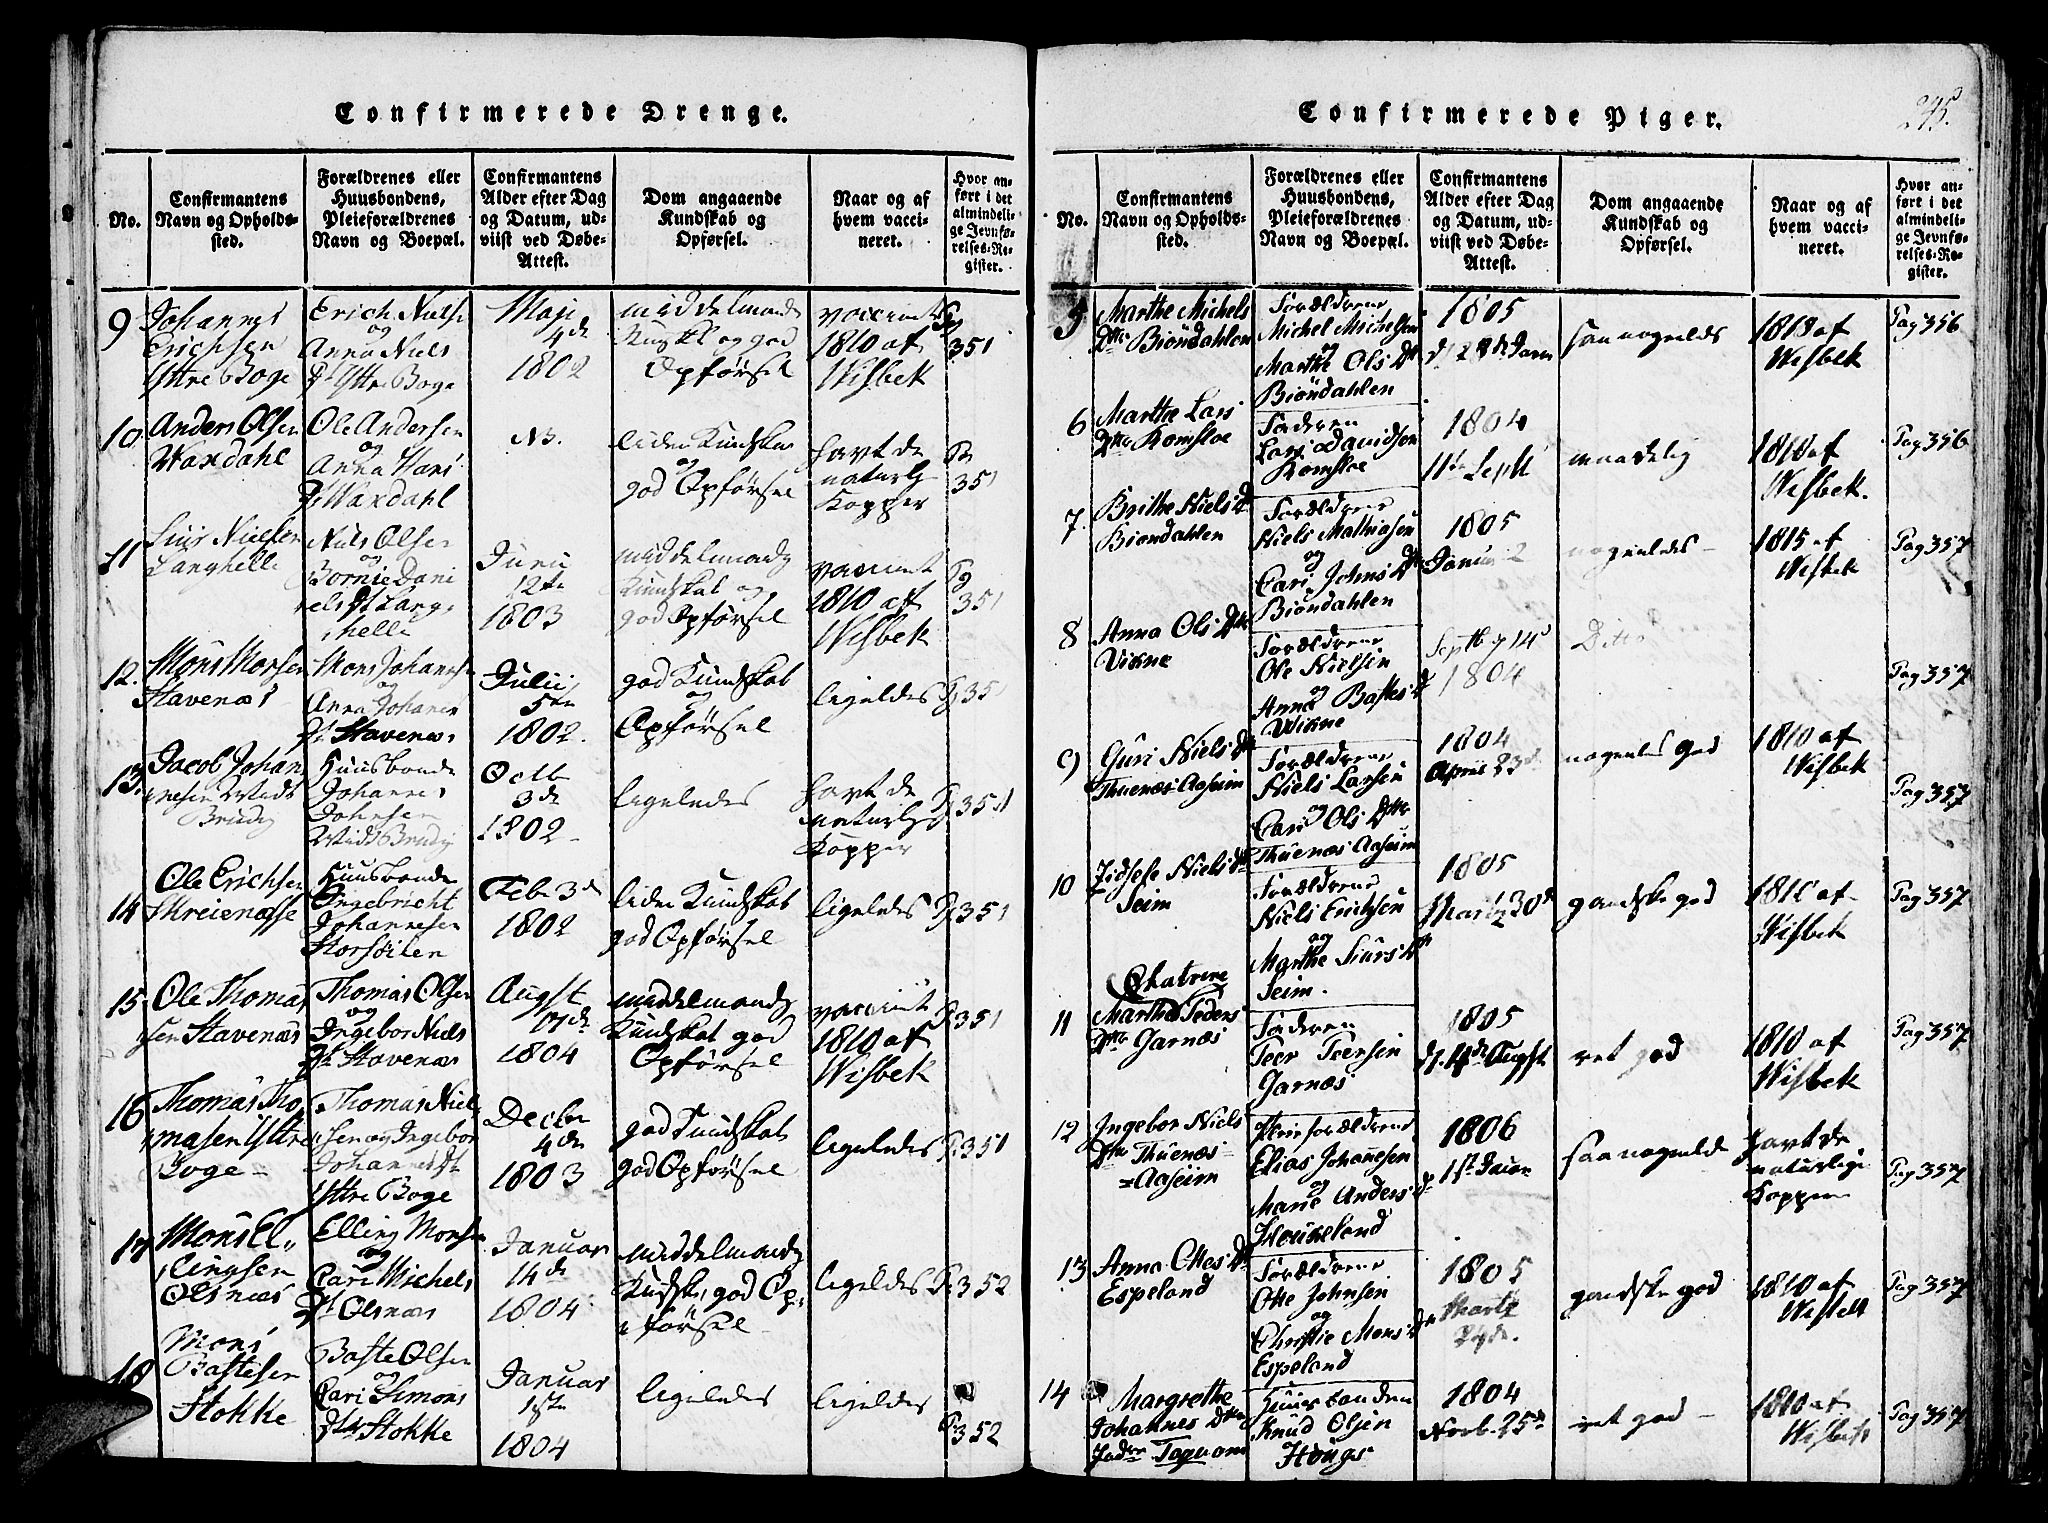 Confirmerede Drenge.
No.
Confirmantens
Navn og Opholds-
sted.
Forældrenes eller
Huusbondens,
Pleieforældrenes
Navn og Boepæl.
Confirmantens
Alder efter Dag
og Datum, ud-
viist ved Døbe-
Attest.
Dom angaaende
Kundskab og
Opførsel.
Naar og af
hvem vacci-
neret.
Hvor an-
ført i det
almindeli-
ge Jevnfø-
relses-Re-
gister.
9
Johannes
Erichsen
Yttre Boge
Erich Niels
og
Anna Niels
Dt Yttre Boge
Maji
4de
1802
middelmaade
og god
Opførsel
vaccinert
1810 af
Wisbek
351
10
Anders Olsen
Waxdahl
Ole Andersen
og
Anna Hans
Dt Waxdahl
liden Kundskab
og
god Opførsel
havt de
naturlig
Kopper
351
11
Siur Nielsen
Langhelle
Niels Olsen
og
Juni
12te
1803
middelmaadig
Kundskab og
god Opførsel
vaccinert
1810 af
Wisbek
Pg
351
12.
Mons Monsen
Stavenæs
Mons Johannes
og
Anna Johannes
Dt Stavenæs
Julii
5te
1802.
god Kundskab
og
Opførsel
ligeledes
351
13.
Jacob Johan
nesen
Huusbonde
Johannes
Johnsen
Octb
3de
1802
ligeledes
havt de
naturlig
Kopper
351
14
Ole Erichsen
Skreienesse
Huusbonde
Ingebricht
Johannesen
Storsøiten
Feb 3de
1802
liden Kundskab
god Opførsel
ligeledes
351
15
Ole Thomas
sen Stavenæs
Thomas Olsen
og
Ingebor Niels
Dt Stavenæs
Augst
1804
middelmaadig
Kundskab god
Opførsel
vaccinert
1810 af
Wisbek
351
16
Thomas Tho
masen Yttre
Boge
Thomas Niel
sen og Ingebor
Johannes Dt
Yttre Boge
Decbr
4de
1803
god Kundskab
god Opførsel
ligeledes
351
17
Mons El„
lingsen
Olsnæs
Elling Monsen
og
Cari Michels
Dt Olsnæs
Januar
14de
1804
middelmaadig
Kundsk. god Op„
førsel
ligeledes
352
18
Mons
Bastesen
Stokke
Baste Olsen
og
Cari Simons
Dtr Stokke
Januar
1ste
1804
ligeledes
ligeledes
352
Confirmerede Piger.
275.
No.
Confirmantens
Navn og Opholds-
sted.
Forældrenes eller
Huusbondens,
Pleieforældrenes
Navn og Boepæl.
Confirmantens
Alder efter Dag
og Datum, ud-
viist ved Døbe-
Attest.
Dom angaaende
Kundskab og
Opførsel.
Naar og af
hvem vacci-
neret.
Hvor an-
ført i det
almindeli-
ge Jevnfø-
relses-Re-
gister.
5
Marthe Michels
Dtr Biöndahlen
Forældrene
Michel Michelsen
og
Marthe Ols Dtr
Biöndahlen
1805
saa nogeleds
1810 af
Wisbek
Pag 356
6
Marthe Lars
Dtr Romsloe
Faderen
Lars Davidsen
Romsloe
1804
11te Sept
maadelig
1810 af
Wisbek.
Pag 356
7.
Brithe Niels Dtr
Biondahlen
Forældrene
Niels Mathiasen
og
Cari Johns Dtr
Biöndahlen
1805
nogeledes
1815 af
Wisbek
Pag 357
8
Anna Ols Dtr
Vikne
Forældrene
Ole Nielsen
og
Anna Bastes Dt
Vikne
1804
Ditto
Pag 357
9
Guri Niels Dtr
Thuenæs Aaseim
Forældrene
Niels Larsen
og
Cari Ols Dtr
Thuenæs Aaseim
1804
April 23d
nogenlds god
1810 af
Wisbek
Pag 357
10
Zidsele Niels Dtr
Seim
Forældrene
Niels Erichsen
og
Marthe Siurs Dtr
Seim.
1805
Marty 30d
gandske god
1810 af
Wisbek
Pag 357
11
Chatrine
Martha Peders
Dtr Garnæs
Faderen
Peer Peersen
Garnæs
1805
d. 4de Augst
ret god
1810 af
Wisbek
Pag 357
12
Ingebor Niels
Dtr Thuenæs
=Aaseim
Pleieforældrene
Elias Johannesen
og
Marie Anders Dr
Houkeland
1806
1st Janr
saa nogelde
havt de
naturlige
Kopper
Pag 357
13
Anna Ottes Dtr
Espeland
Forældrene
Otte Johnsen
og
Christie Mons Dtr
Espeland
1805
Marty
gandske god
1810 af
Wisbek
Pag 357
14
Margrethe
Johannes Dtr
Huusbonden
Knud Olsen
Hougs
1804
Novb. 25d
ret god
1810 af
Wisbek
Pag 357